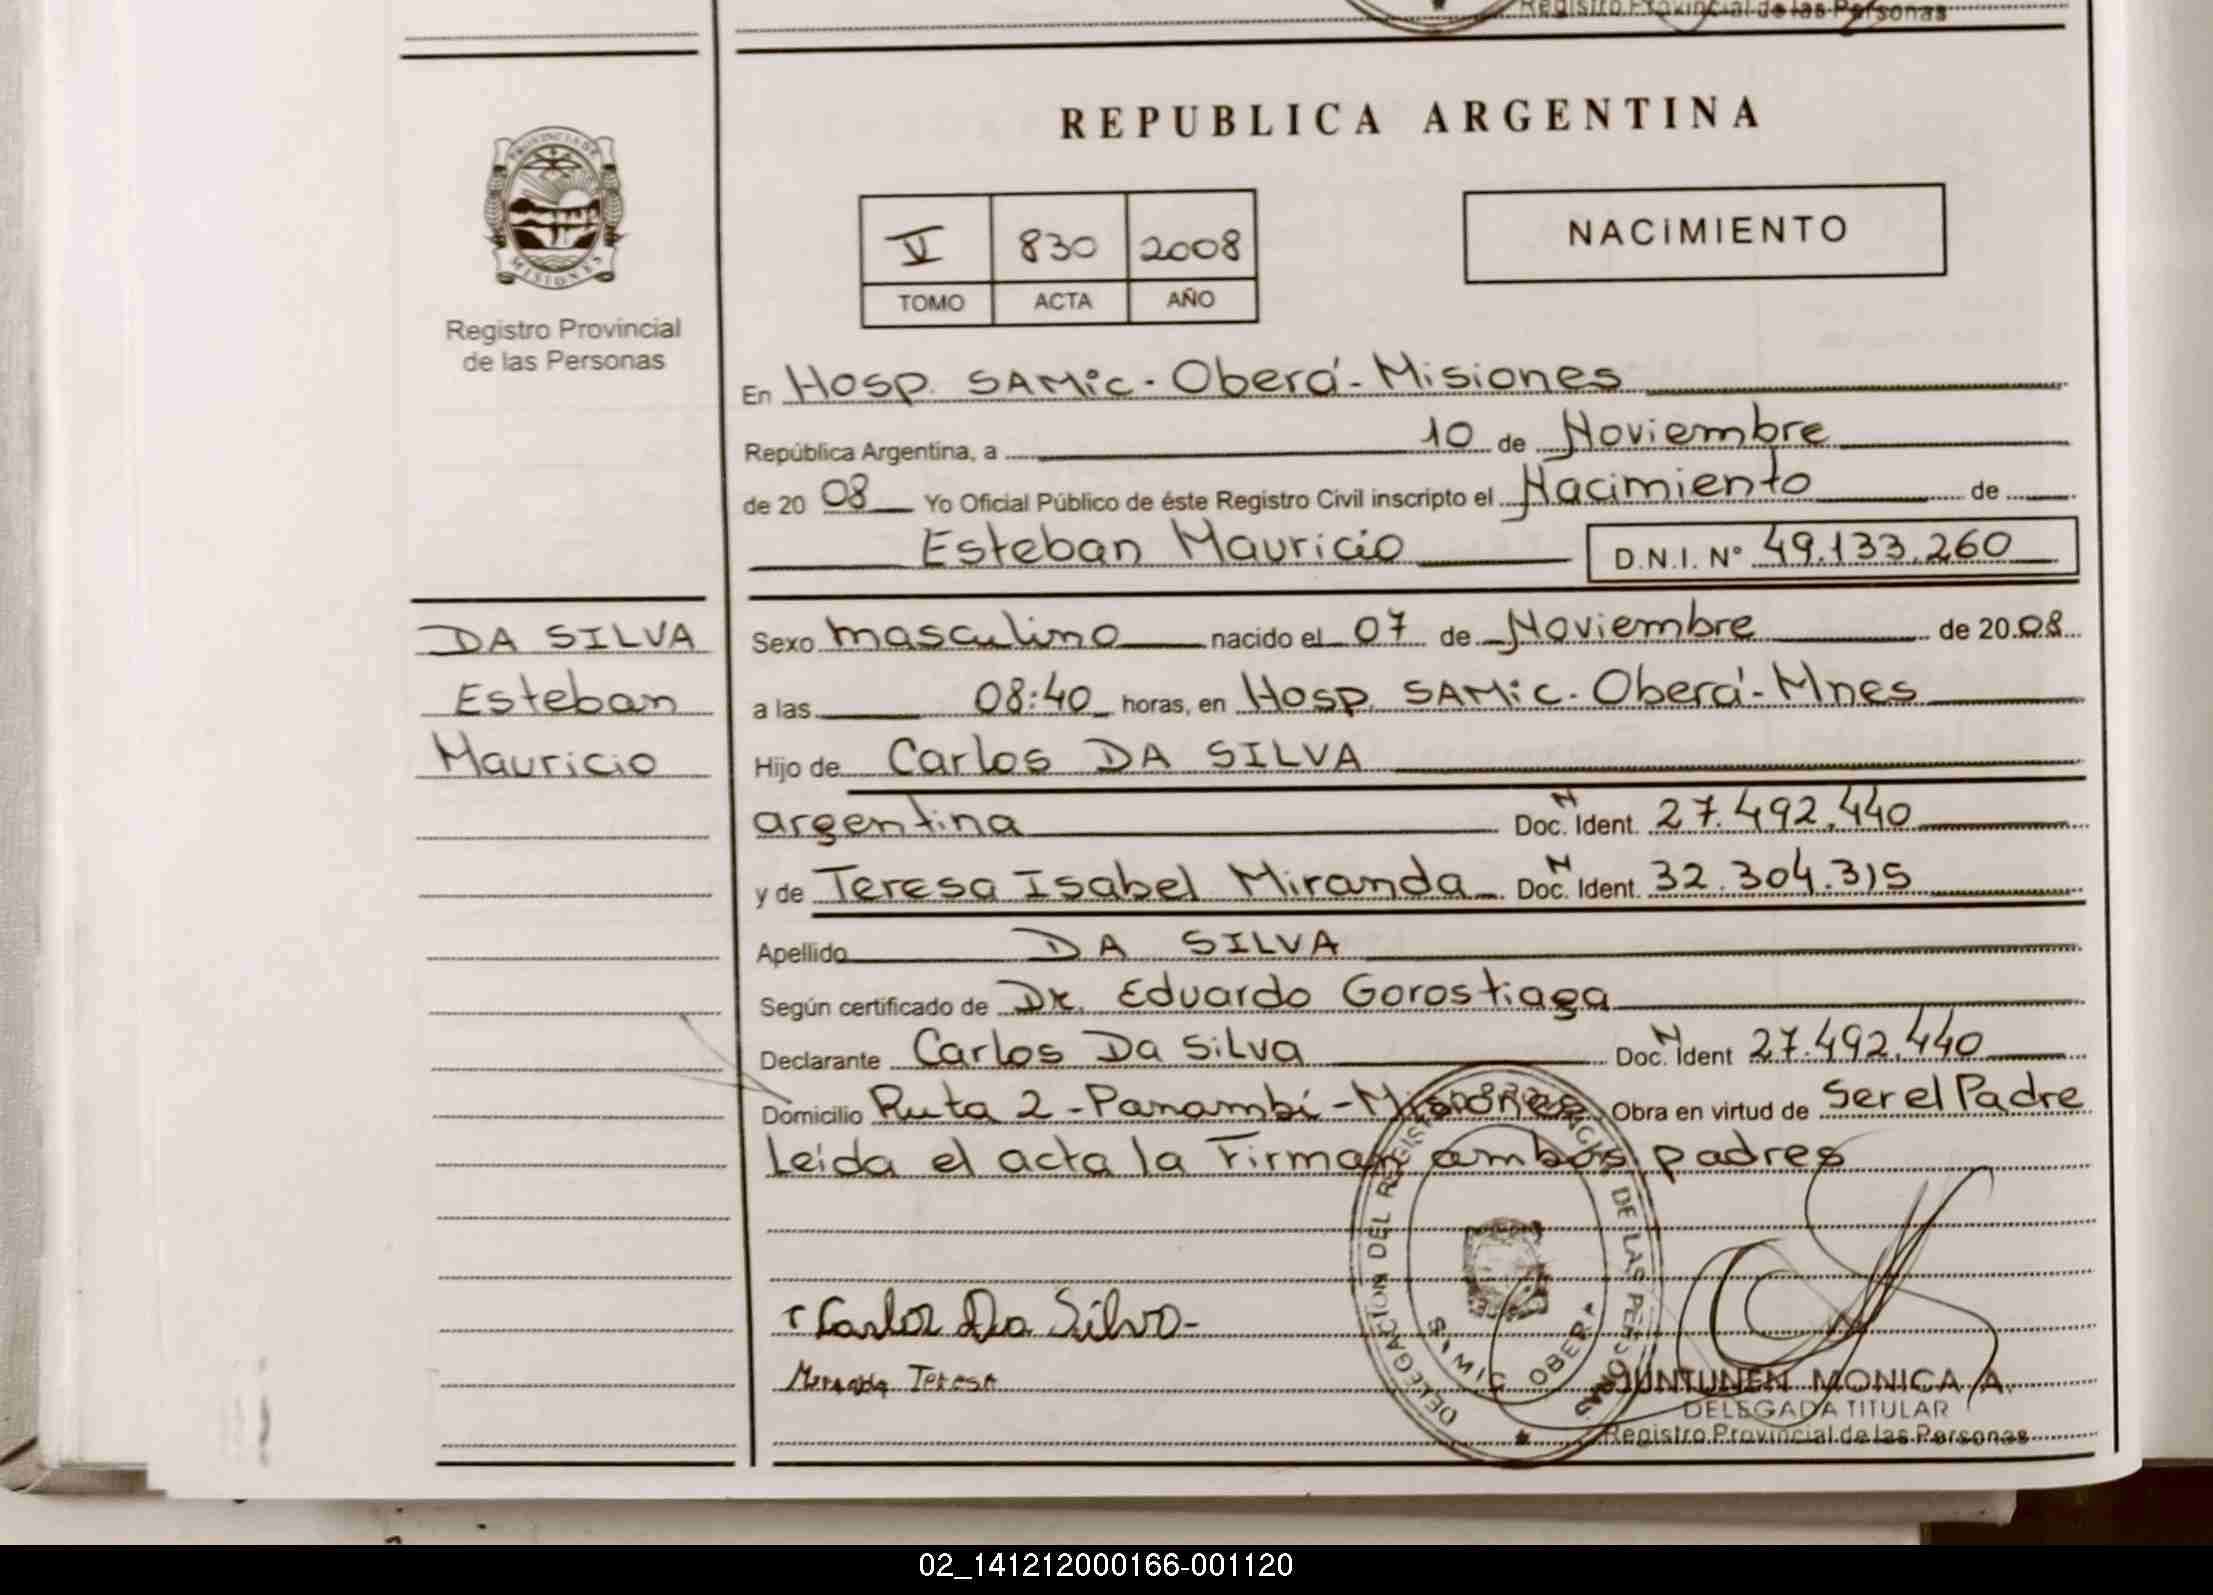 Registro Provincial de las Personas
REPUBLICA ARGENTINA
PROVINCIA DE
MISIONES
Registro Provincial
de las Personas
V 830 2008
TOMO ACTA AÑO
NACIMIENTO
En Hosp. SAMic - Oberá - Misiones
República Argentina, a 10 de Noviembre
de 20 08 Yo Oficial Público de éste Registro Civil inscripto el Nacimiento de
Esteban Mauricio D.N.I. N° 49.133.260
DA SILVA
Esteban
Mauricio
Sexo masculino nacido el 07 de Noviembre de 20 08
a las 08:40 horas, en Hosp. SAMic - Oberá - Mnes
Hijo de Carlos DA SILVA
argentina Doc. N Ident. 27.492.440
y de Teresa Isabel Miranda Doc. N Ident. 32.304.315
Apellido DA SILVA
Según certificado de Dr. Eduardo Gorostiaga
Declarante Carlos Da Silva Doc. N Ident 27.492.440
Domicilio Ruta 2 - Panambí - Misiones Obra en virtud de Ser el Padre
Leida el acta la Firman ambos padres
Carlos Da Silva
Miranda Teresa
DELEGACION DEL REGISTRO DE LAS PERSONAS
OBERA
JUNTUNEN MONICA A.
DELEGADA TITULAR
Registro Provincial de las Personas
02_141212000166-001120